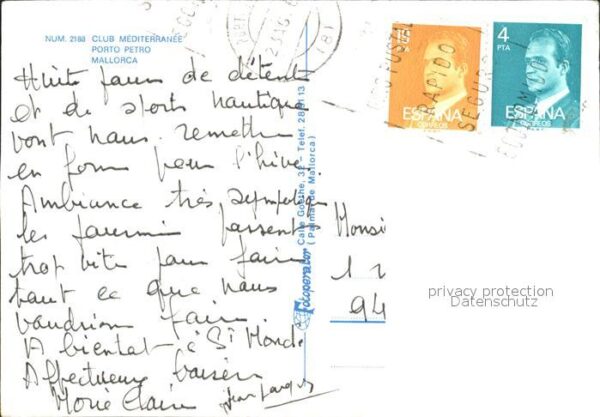 NUM. 2188 CLUB MEDITERRANÉE
PORTO PETRO
MALLORCA
Huit jours de détente
et de sports nautique
vont nous remettre
en forme pour l'hiver.
Ambiance très sympatique
les journées passent
trop vite pour faire
tout ce que nous
voudrions faire.
A bientôt à St Mandé
Affectueux baisers
Marie Claire Jean Jacques
Fotoperator Calle Goethe, 32 - Telef.
(Palma de Mallorca)
ESPAÑA
CORREOS
4
PTA
ESPAÑA
RAPIDO
SEGURO
Monsi
94
privacy protection
Datenschutz